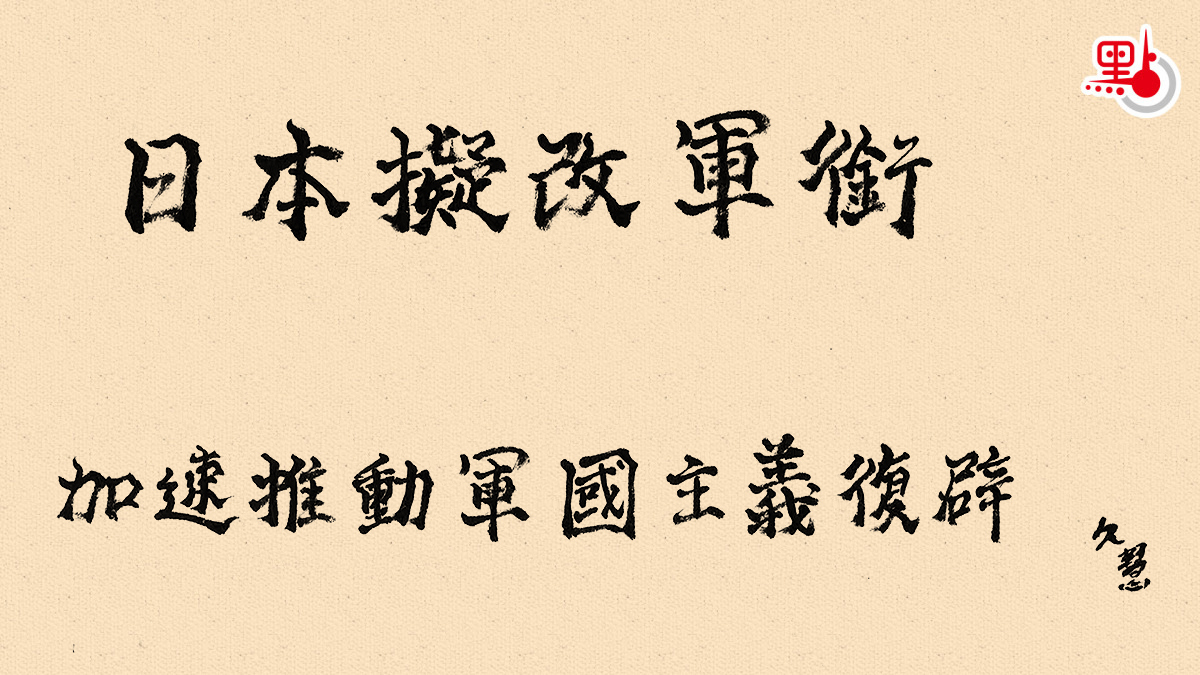 點
日本擬改軍銜
加速推動軍國主義復辟
久慧